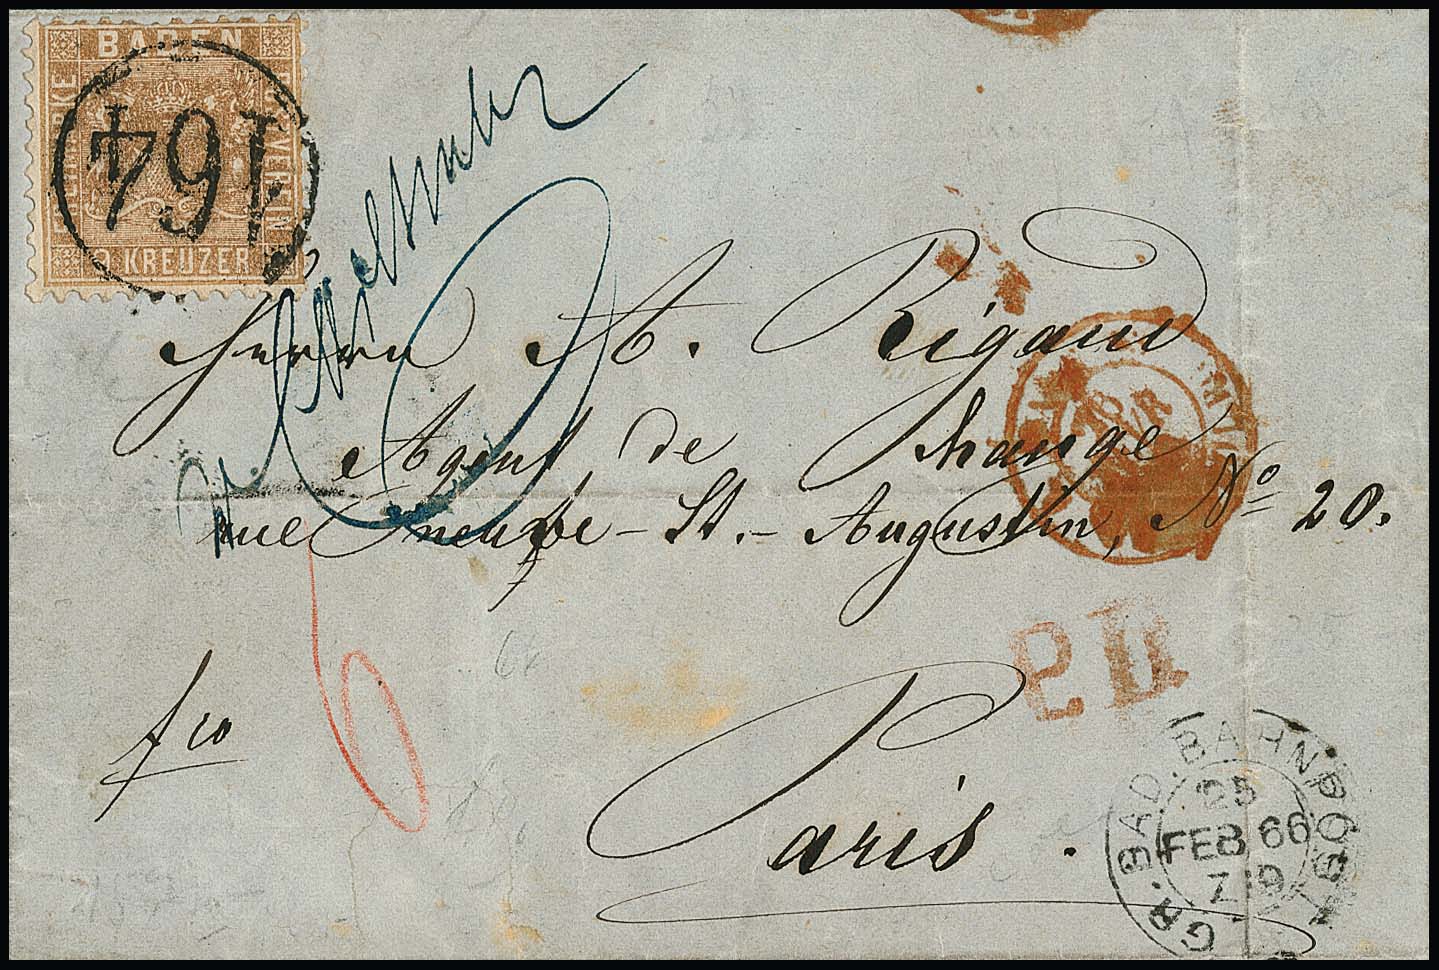 BADEN
KREUZER
164
Herrn A. Rigaud
Agent de change
rue neuve-St.-Augustin, No 20.
fco
6
P.D.
Paris.
GR. BAD. BAHNPOST
25
FEB 66
Z 9